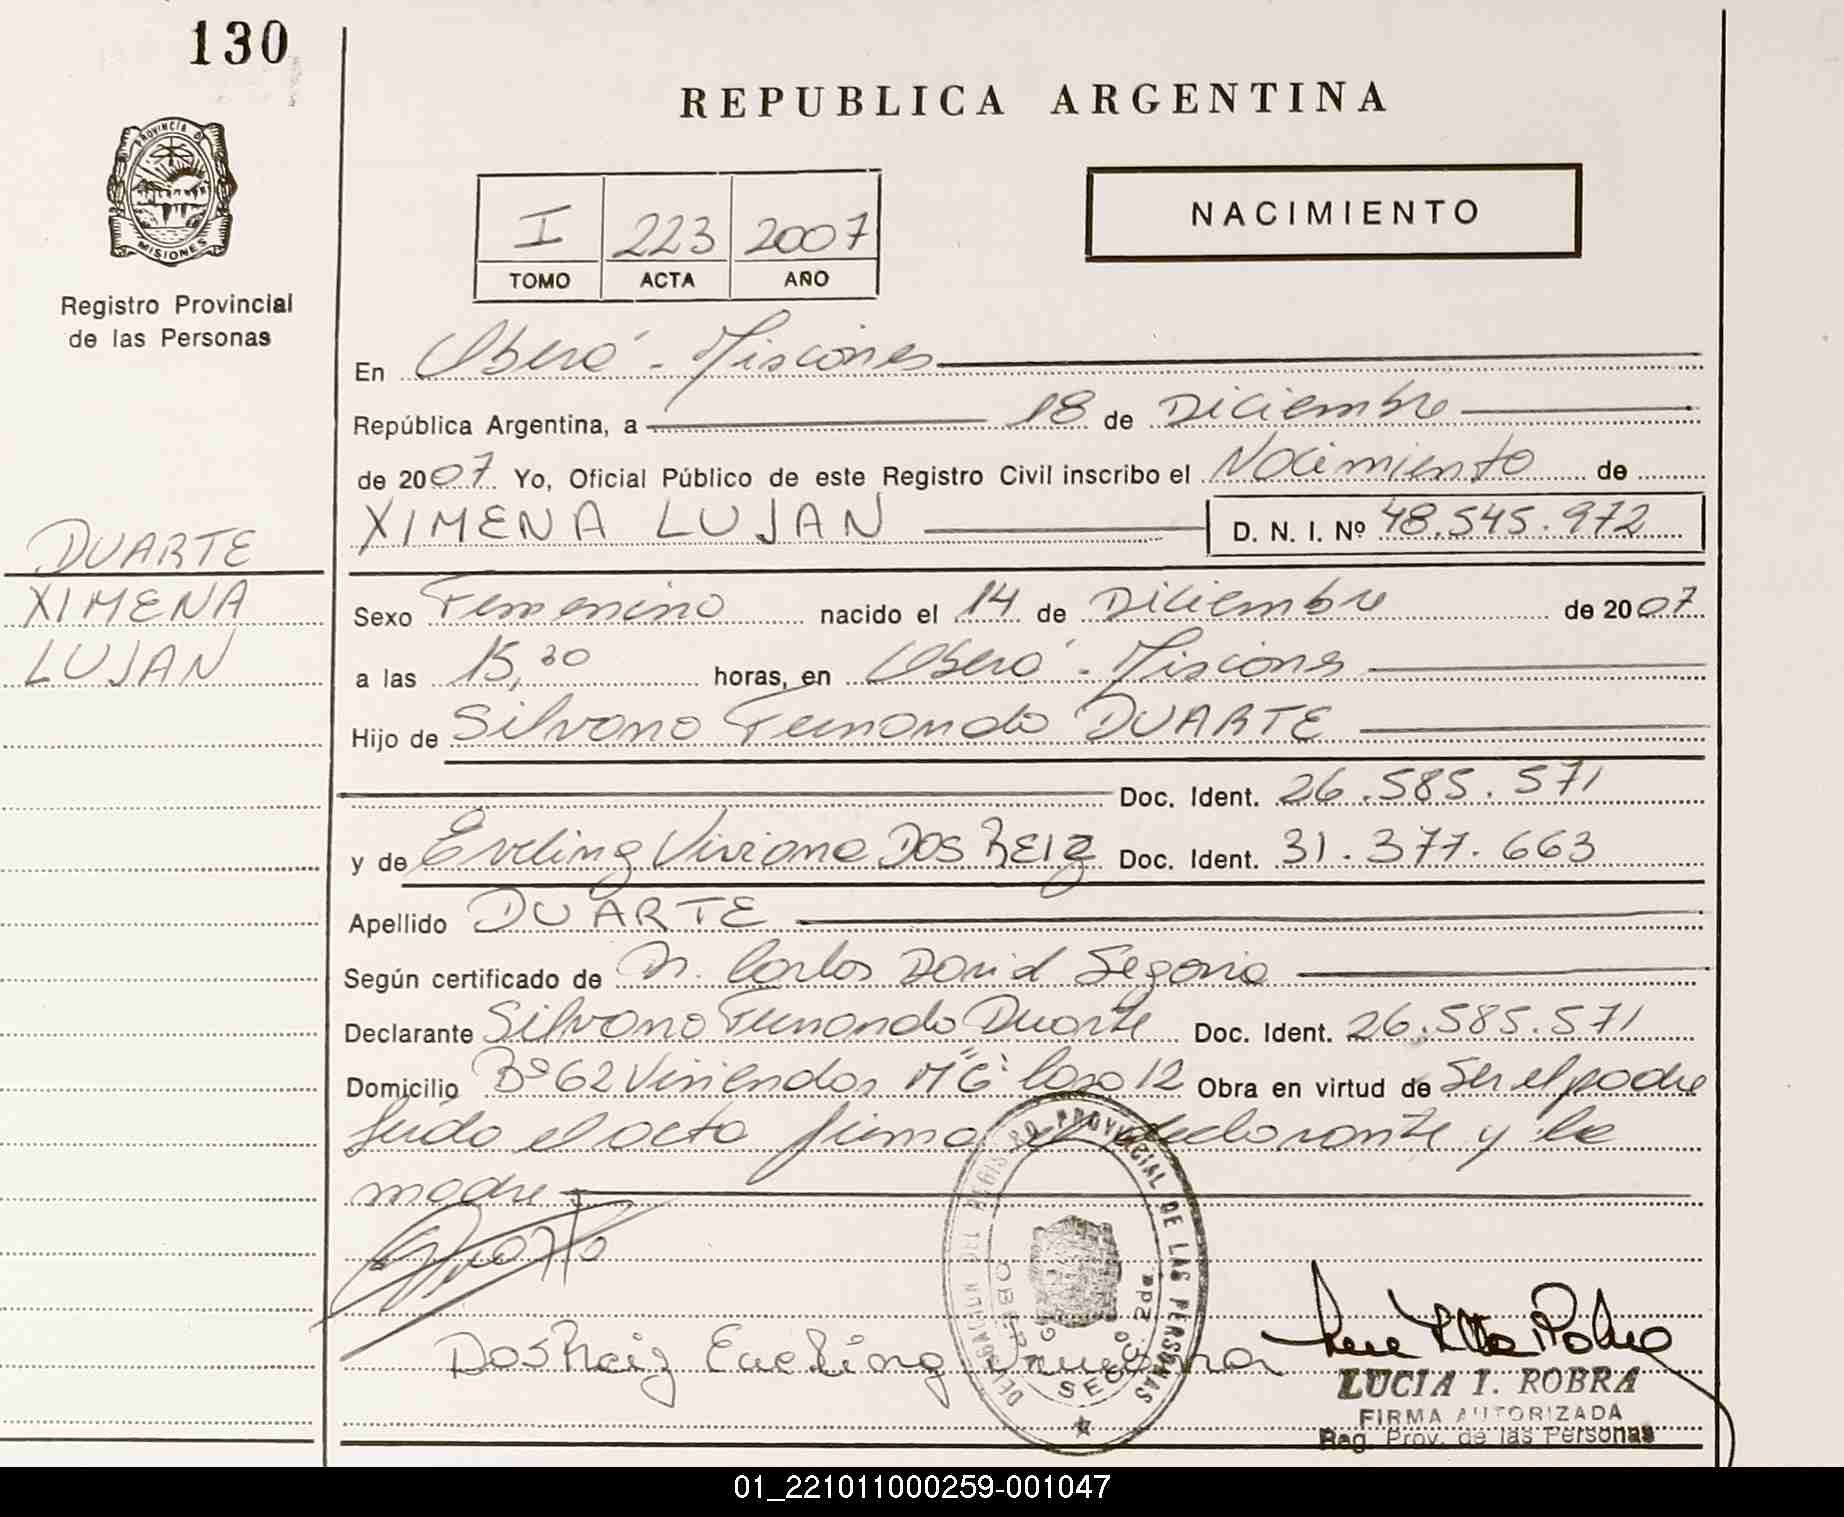 130
REPUBLICA ARGENTINA
PROVINCIA DE
MISIONES
Registro Provincial
de las Personas
I 223 2007
TOMO ACTA AÑO
NACIMIENTO
En Oberá - Misiones
República Argentina, a 18 de Diciembre
de 2007 Yo, Oficial Público de este Registro Civil inscribo el Nacimiento de
XIMENA LUJAN D. N. I. Nº 48.545.972
DUARTE
XIMENA
LUJAN
Sexo Femenino nacido el 14 de Diciembre de 2007
a las 15, horas, en Oberá - Misiones
Hijo de Silvano Fernando DUARTE
Doc. Ident. 26.585.571
y de Eveling Viviana DOS REIZ Doc. Ident. 31.377.663
Apellido DUARTE
Según certificado de Dr. Carlos David Segovia
Declarante Silvano Fernando Duarte Doc. Ident. 26.585.571
Domicilio Bº 62 Viviendas M"G" Casa 12 Obra en virtud de Ser el padre
Leida el acta firma el declarante y la
madre
DosReiz Eveling
DELEGACION DEL REGISTRO PROVINCIAL DE LAS PERSONAS
OBERA
SECC. 2da
LUCIA I. ROBRA
FIRMA AUTORIZADA
Reg. Prov. de las Personas
01_221011000259-001047